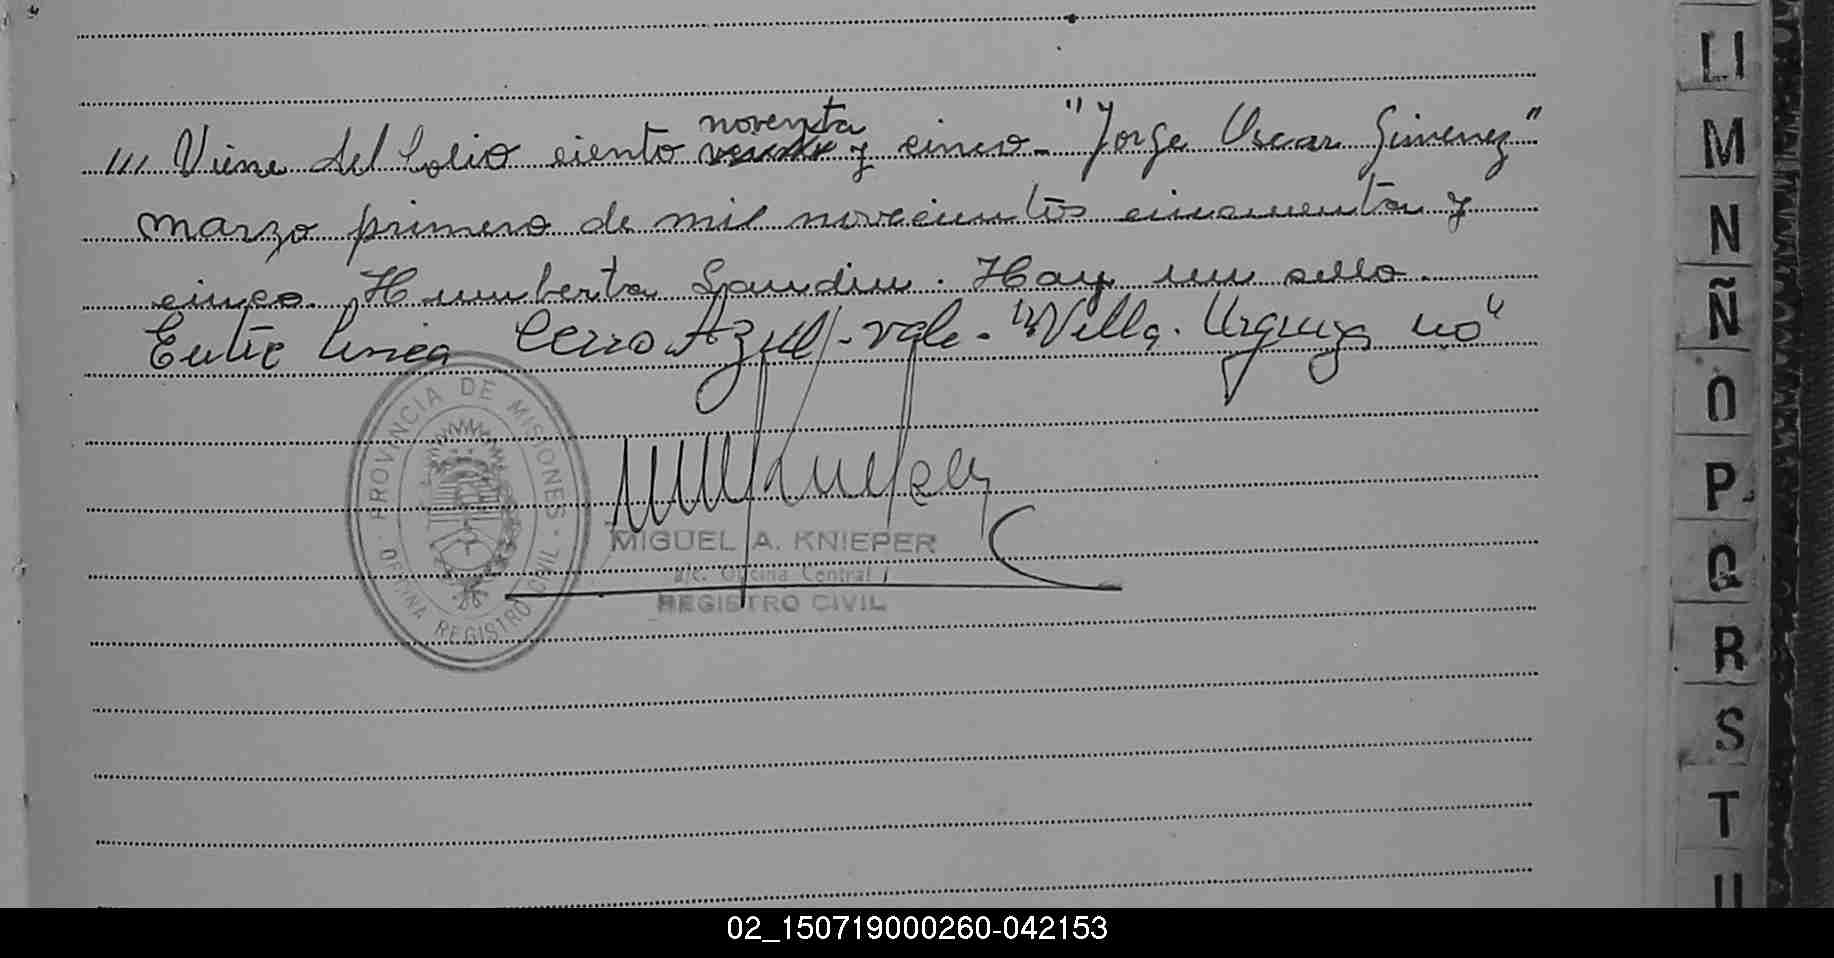 /// Viene del folio ciento noventa y cinco - "Jorge Oscar Gimenez"
marzo primero de mil novecientos cincuenta y
cinco. Humberto Gaudin. Hay un sello.
Entre linea Cerro Azul - vale - "Villa Urquiza no"
PROVINCIA DE MISIONES
OFICINA REGISTRO CIVIL
MIGUEL A. KNIEPER
a/c. Oficina Central
REGISTRO CIVIL
Ll
M
N
Ñ
O
P
Q
R
S
T
U
02_150719000260-042153